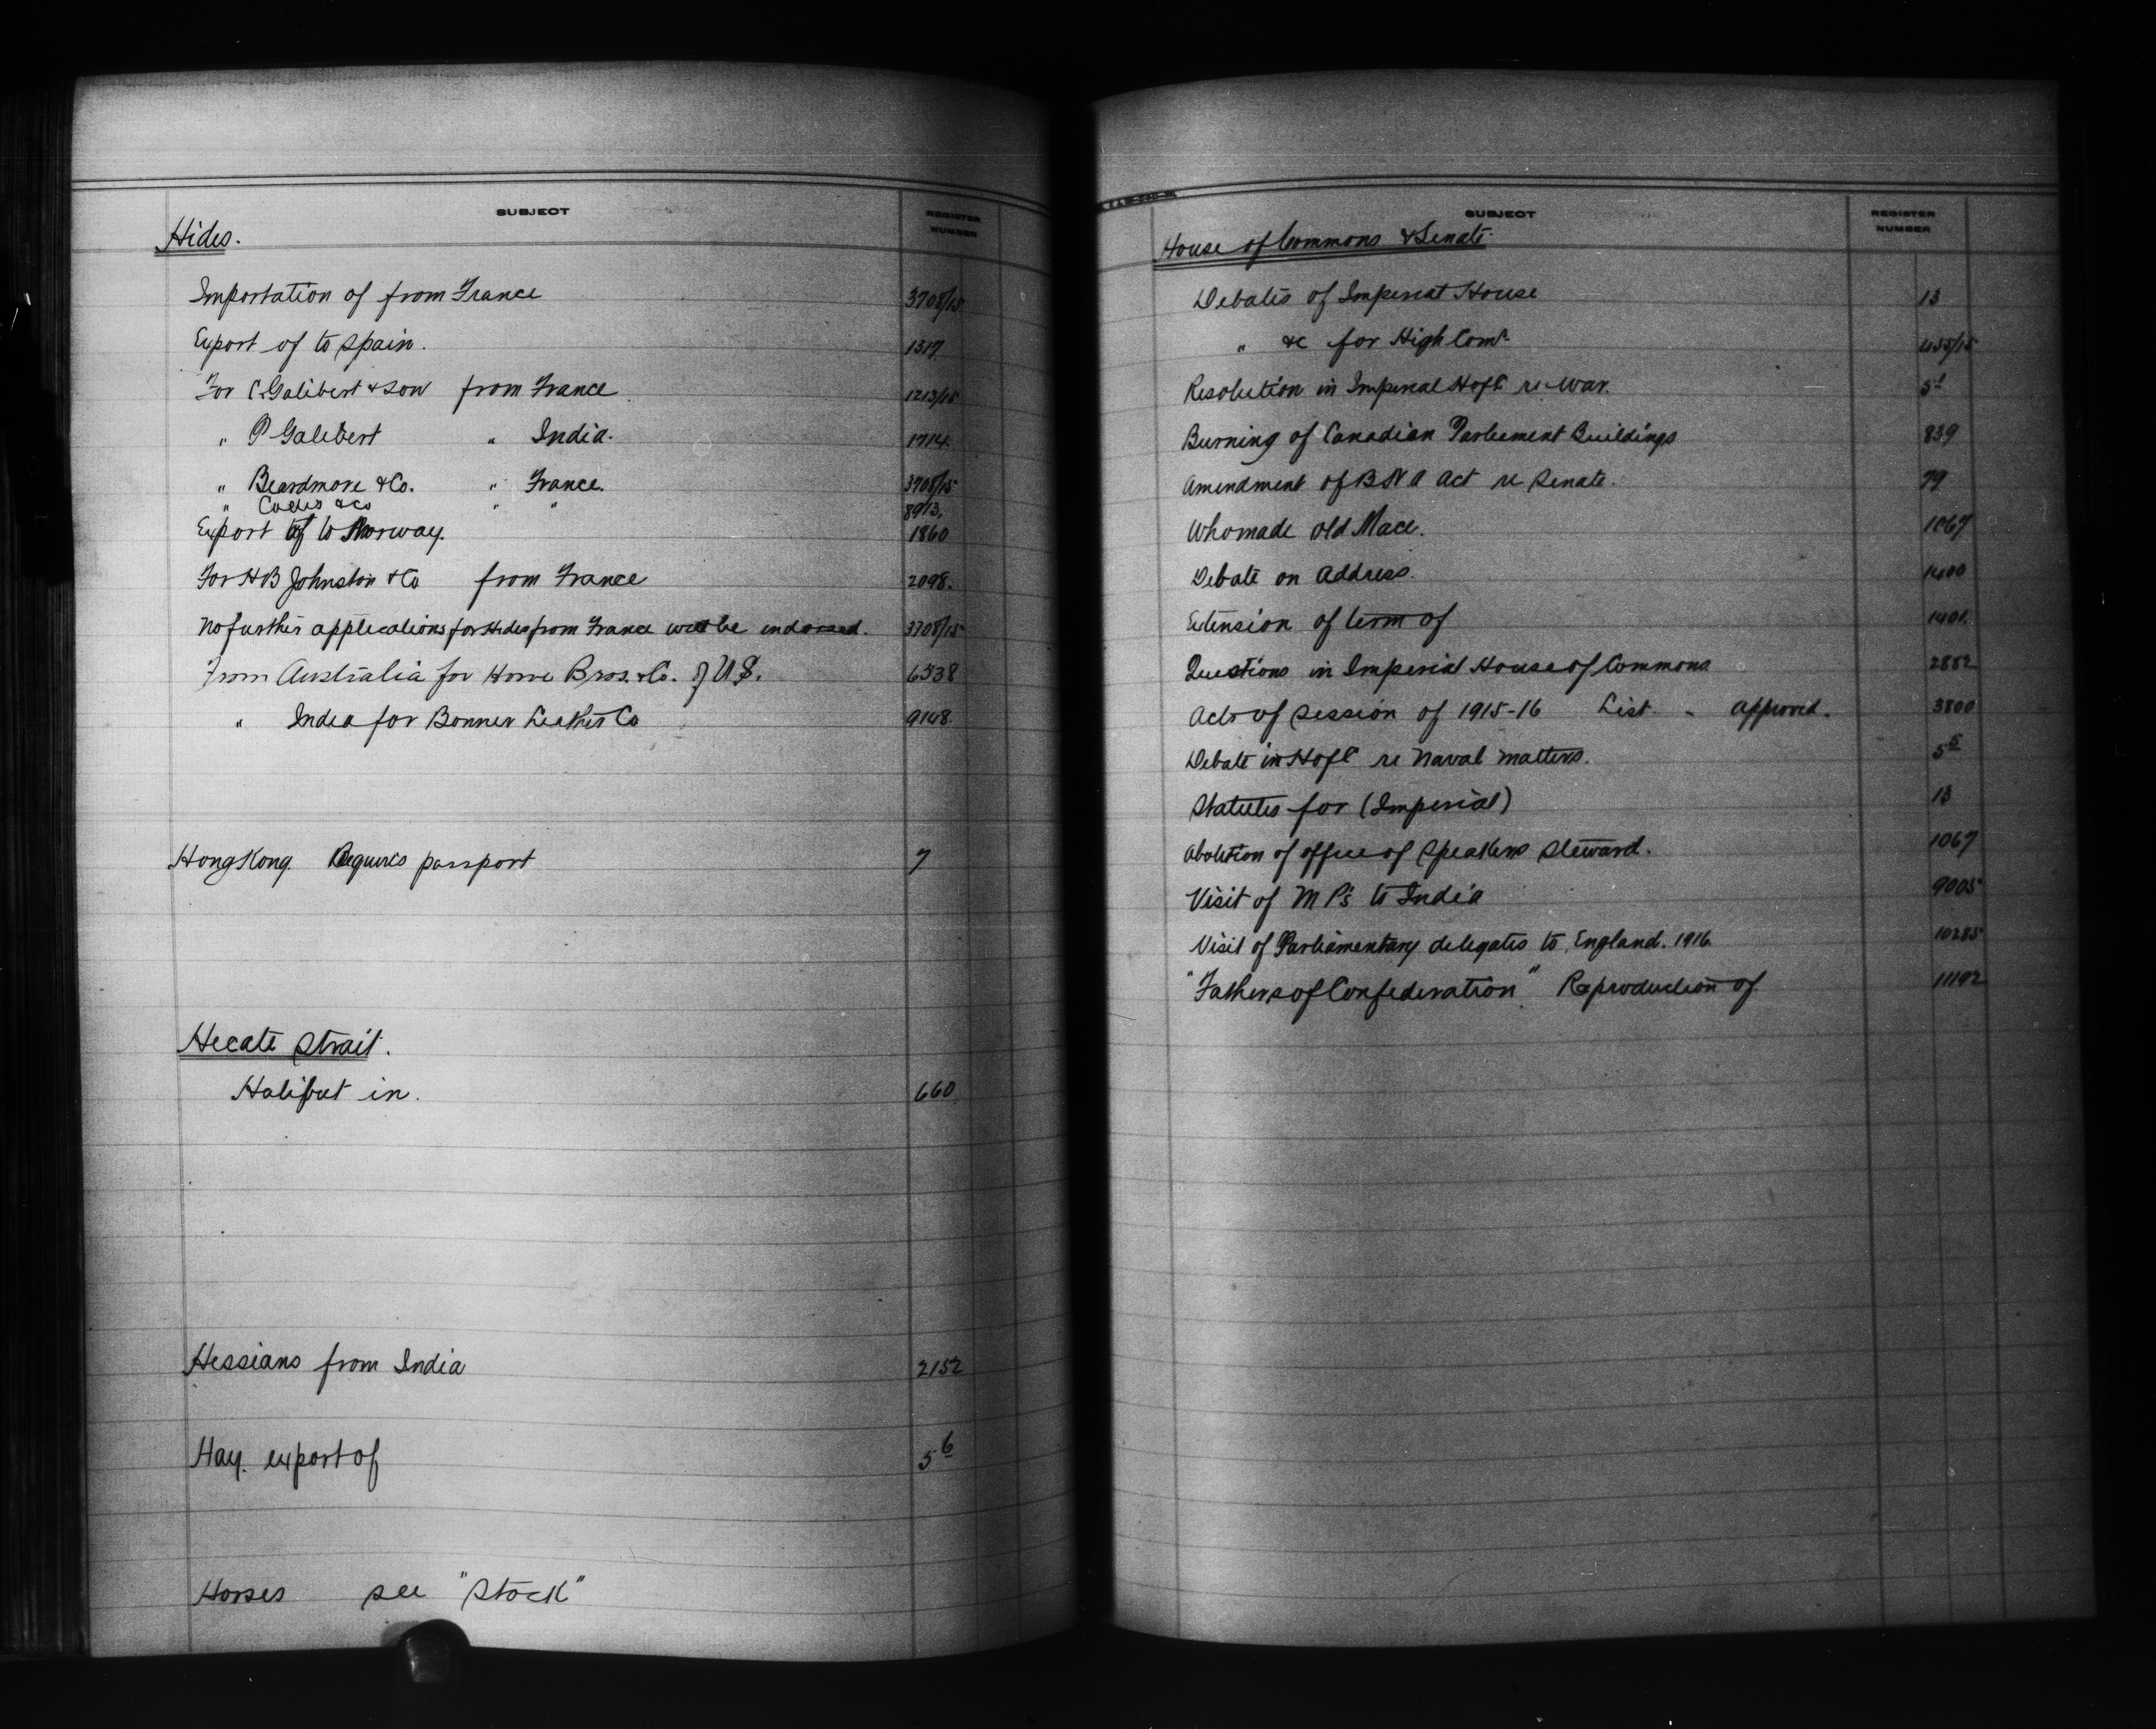 SUBJECT
REGISTER
NUMBER
Hides.
Importation of from France 3708/15
Export of to Spain. 1317
For C. Galibert & Son from France 1213/15
" P Galibert " India. 1714.
" Beardmore & Co. " France. 3708/15
" & Co " " 8913.
Export of to Norway. 1860
For H B Johnston & Co from France 2098.
No further applications for Hides from France will be indorsed. 3708/15
From Australia for Howe Bros. & Co. of U.S. 6338
" India for Bonner Leather Co 9148.
Hong Kong. Requires passport 7
Hecate Strait.
Halibut in. 660
Hessians from India 2152
Hay. export of 5 6
Horses see "Stock"
SUBJECT
REGISTER
NUMBER
House of Commons & Senate.
Debates of Imperial House 13
" &c for High Comr 455/15
Resolution in Imperial HofC re War. 5 1
Burning of Canadian Parliament Buildings 839
Amendment of B N A Act re Senate. 79
Who made old Mace. 1067
Debate on Address. 1400
Extension of term of 1401
Questions in Imperial House of Commons 2882
Acts of Session of 1915-16 List - approved. 3800
Debate in HofC re Naval matters. 5 5
Statutes for (Imperial) 13
Abolition of office of Speakers Steward. 1067
Visit of M P's to India 9005
Visit of Parliamentary delegates to England. 1916. 10285
"Fathers of Confederation". Reproduction of 11192